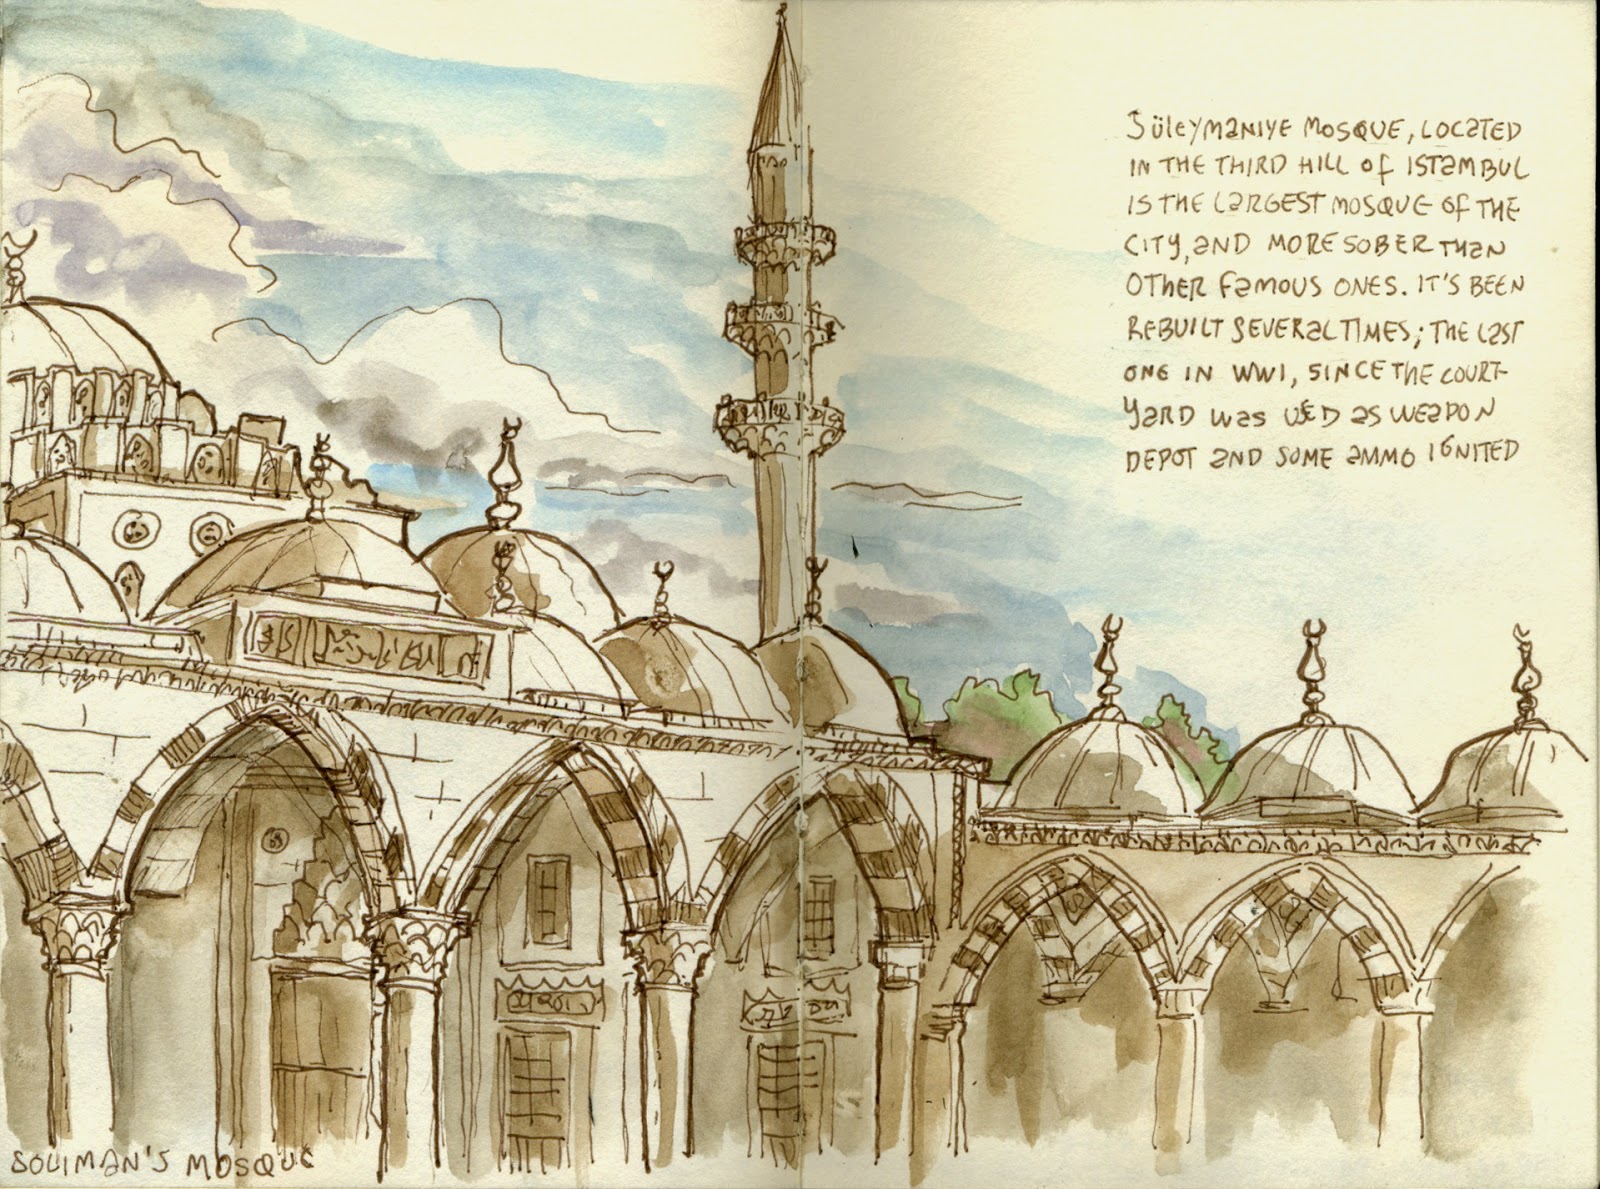 SÜLEYMANIYE MOSQUE, LOCATED
IN THE THIRD HILL OF ISTAMBUL
IS THE LARGEST MOSQUE OF THE
CITY, AND MORE SOBER THAN
OTHER FAMOUS ONES. IT'S BEEN
REBUILT SEVERAL TIMES; THE LAST
ONE IN WWI, SINCE THE COURT-
YARD WAS USED AS WEAPON
DEPOT AND SOME AMMO IGNITED
SOLIMAN'S MOSQUE